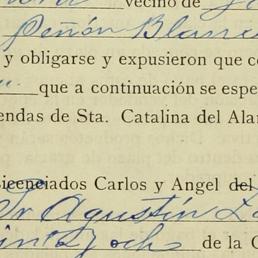 vecino de
Peñón Blanco
y obligarse y expusieron que c
que a continuación se espe
endas de Sta. Catalina del Ala
icenciados Carlos y Angel del
Sr Agustín L
de la C